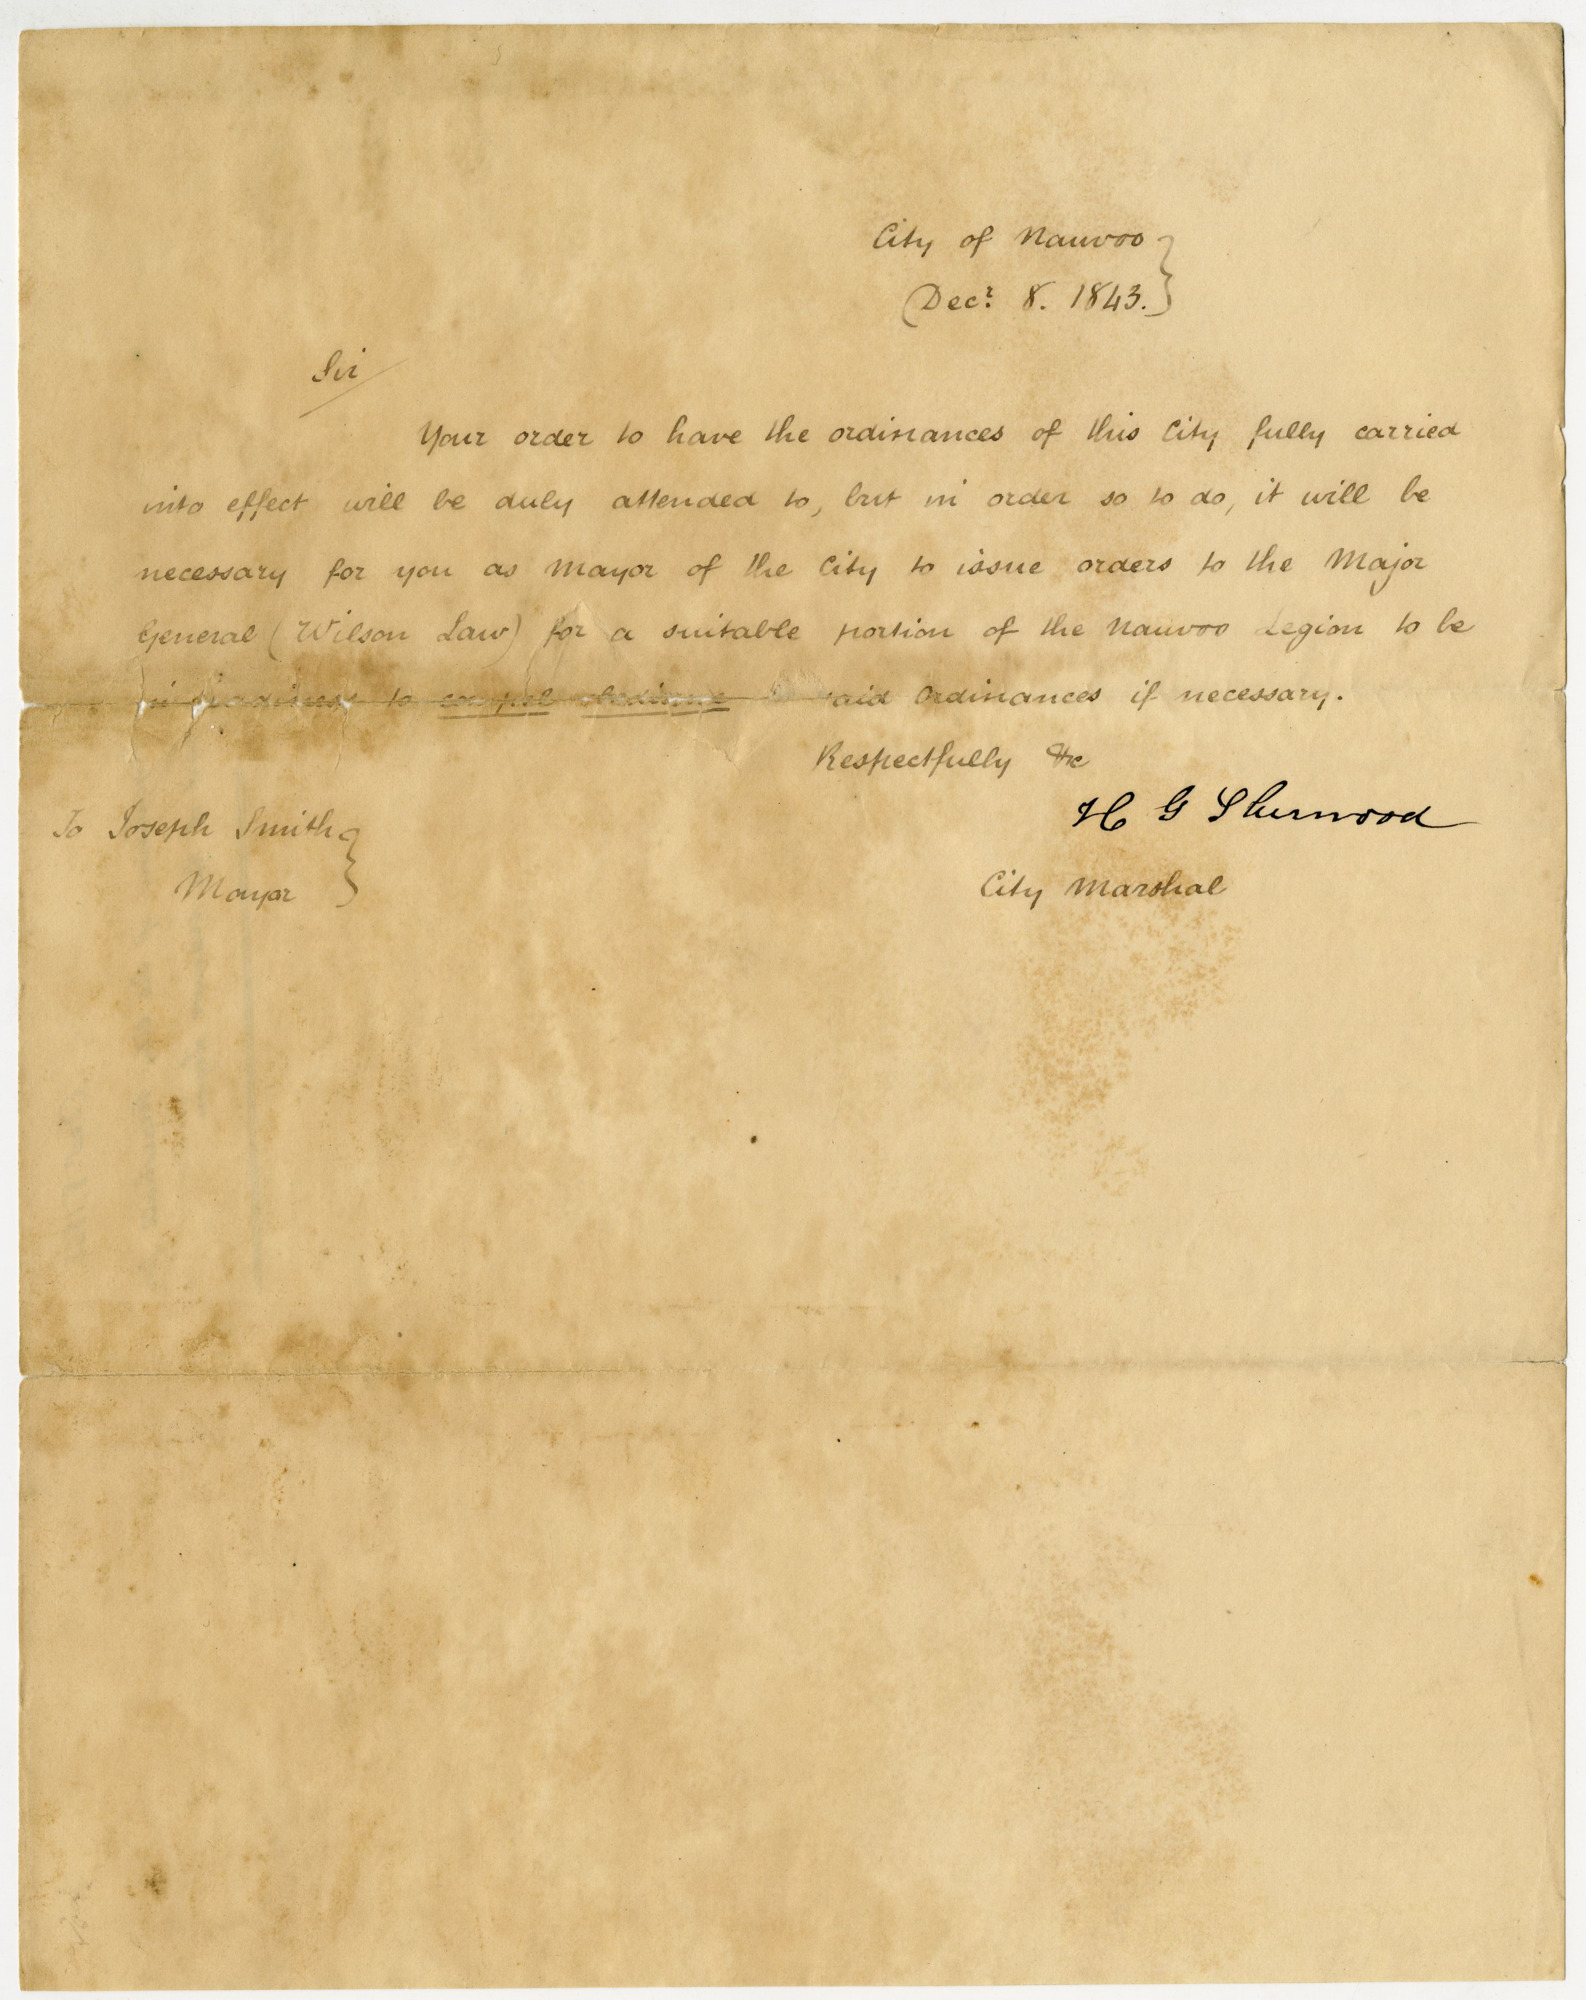 City of Nauvoo
Decr. 8. 1843.
Sir
Your order to have the ordinances of this City fully carried
into effect will be duly attended to, but in order so to do, it will be
necessary for you as Mayor of the City to issue orders to the Major
General (Wilson Law) for a suitable portion of the Nauvoo Legion to be
in readiness to compel obedience to said Ordinances if necessary.
Respectfully &c
H G Sherwood
To Joseph Smith
Mayor
City Marshal